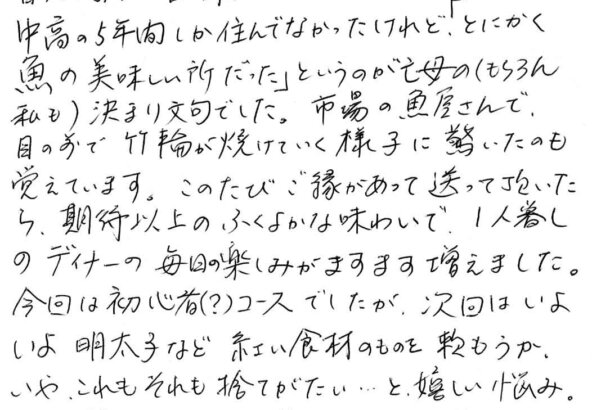 中高の5年間しか住んでなかったけれど、とにかく
魚の美味しい所だった」というのが亡母の(もちろん
私も)決まり文句でした。市場の魚屋さんで、
目の前で竹輪が焼けていく様子に驚いたのも
覚えています。このたびご縁があって送って頂いた
ら、期待以上のふくよかな味わいで、1人暮し
のディナーの毎日の楽しみがますます増えました。
今回は初心者(?)コースでしたが、次回はいよ
いよ明太子など紅い食材のものを頼もうか、
いや、これもそれも捨てがたい…と、嬉しい悩み。